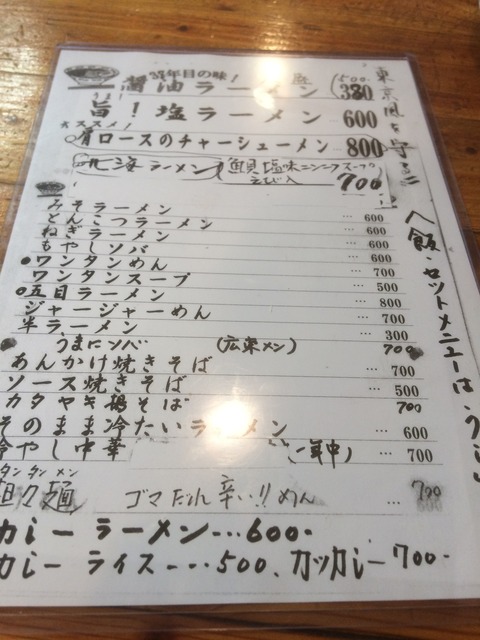 37年目の味!
醤油ラーメン 380
(500.
旨!塩ラーメン 600
★ススメ!
肩ロースのチャーシューメン 800
北海ラーメン 魚貝塩味ニンニクスープ
えび入 700
みそラーメン … 600
とんこつラーメン
ねぎラーメン … 600
もやしソバ … 600
●ワンタンめん … 700
ワンタンスープ … 500
○五目ラーメン … 800
ジャージャーめん … 700
半ラーメン … 300
● うまにソバ (広東メン) 700
あんかけ焼きそば … 700
ソース焼きそば … 500
カタヤキ焼そば 700
そのまま冷たいラーメン … 600
冷やし中華 (一年中) … 700
タンタンメン
担々麺 ゴマだれ 辛い!!めん 700
カレーラーメン…600-
カレーライス…500、カツカレー700-
東京風を守る
へ飯・セットメニューはうら